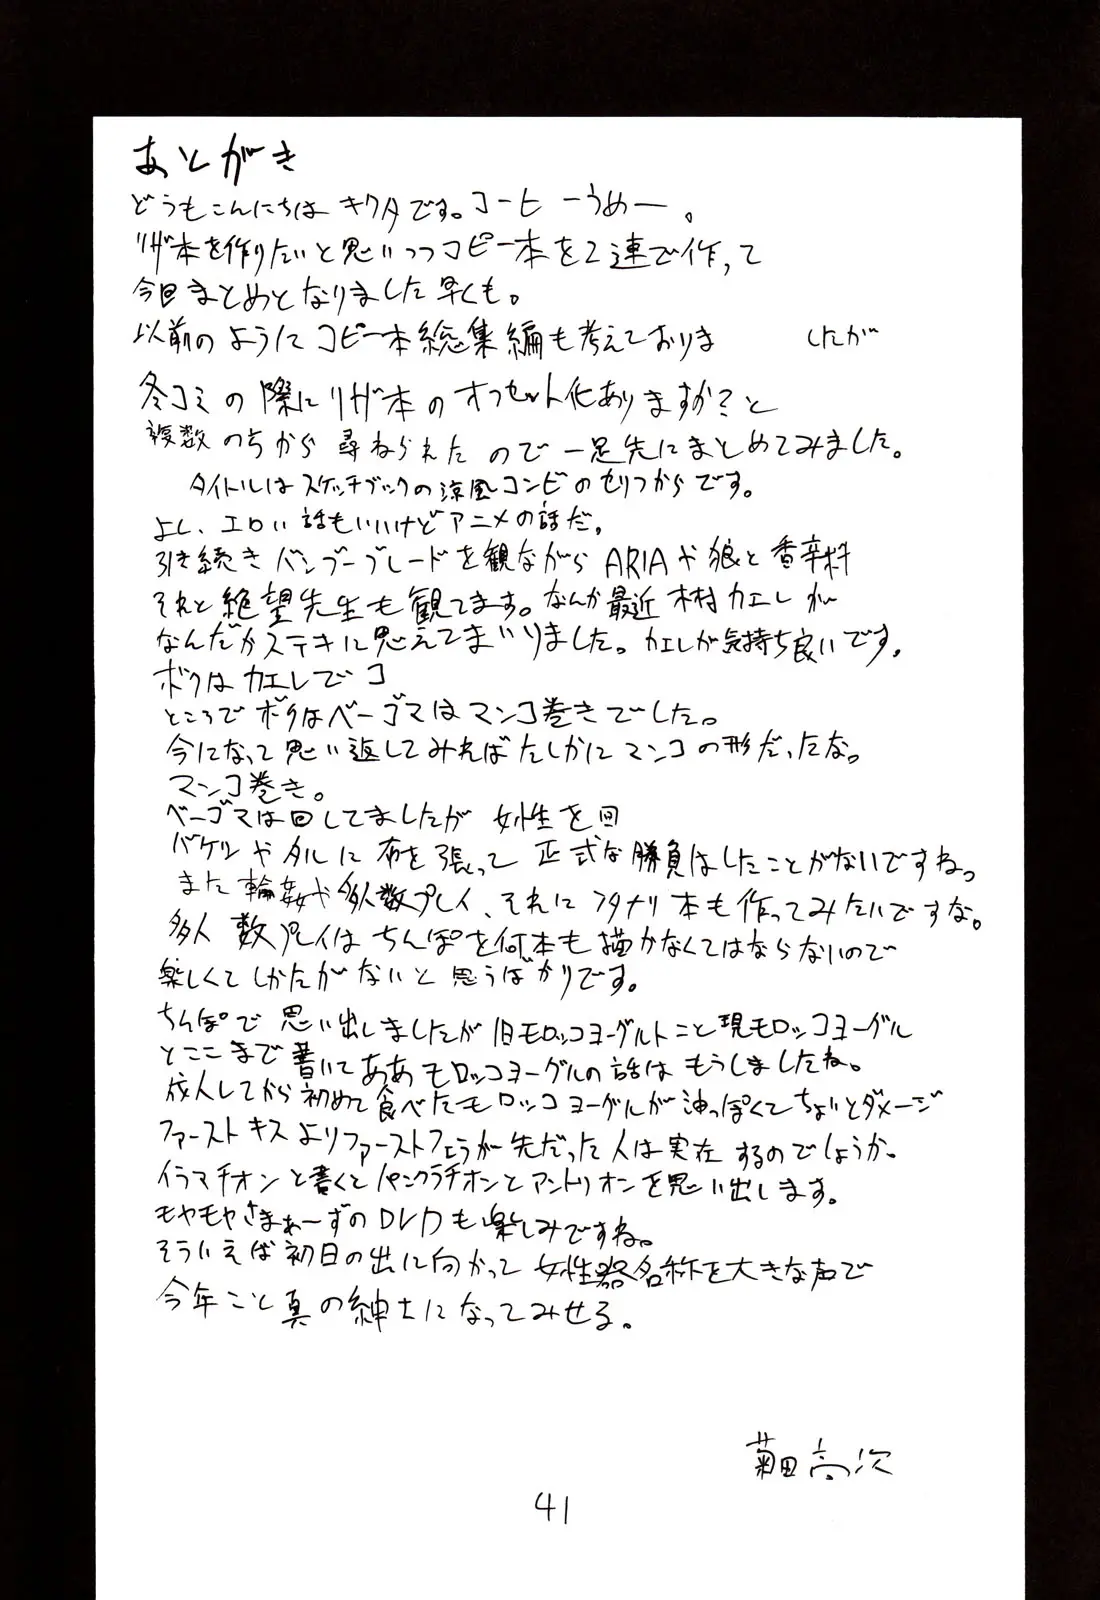 あとがき
どうもこんにちは キクタです。コーヒーうめー。
リザ本を作りたいと思いつつコピー本を2連で作って
今回まとめとなりました早くも。
以前のようにコピー本総集編も考えておりま したが
冬コミの際にリザ本のオフセット化ありますか?と
複数の方から尋ねられたので一足先にまとめてみました。
タイトルはスケッチブックの涼風コンビのセリフからです。
よし、エロい話もいいけどアニメの話だ。
引き続きバンブーブレードを観ながらARIAや狼と香辛料
それと絶望先生も観てます。なんか最近 木村カエレが
なんだかステキに思えてまいりました。カエレが気持ち良いです。
ボクはカエレでコ
ところでボクはベーゴマはマンコ巻きでした。
今になって思い返してみればたしかにマンコの形だったな。
マンコ巻き。
ベーゴマは回してましたが 女性を回
バケツやタルに布を張って正式な勝負はしたことがないですね。
また輪姦や多人数プレイ、それにフタナリ本も作ってみたいですな。
多人数プレイはちんぽを何本も描かなくてはならないので
楽しくてしかたがないと思うばかりです。
ちんぽで思い出しましたが旧モロッコヨーグルトこと現モロッコヨーグル
とここまで書いてああモロッコヨーグルの話はもうしましたね。
成人してから初めて食べたモロッコヨーグルが油っぽくてちょいとダメージ
ファーストキスよりファーストフェラが先だった人は実在するのでしょうか。
イラマチオンと書くとパンクラチオンとアントリオンを思い出します。
モヤモヤさまぁ〜ずのDVDも楽しみですね。
そういえば初日の出に向かって女性器名称を大きな声で
今年こと真の紳士になってみせる。
菊田高次
41